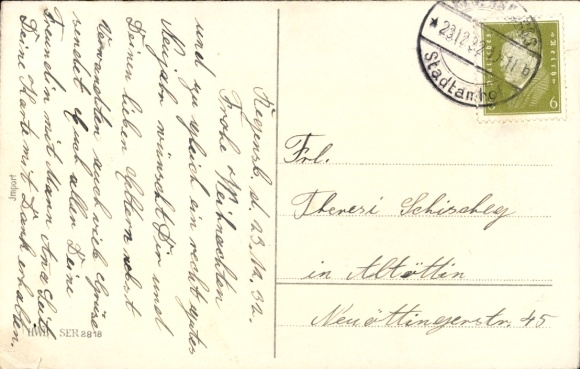 Regensb. d. 23.12.32.
Frohe Weihnachten
und zu gleich ein recht gutes
Neujahr wünscht Dir und
Deinen lieben Eltern nebst
Verwandten auch viele Grüße
sendet Euch allen Deine
Freundin mit Mann
Deine Karte mit Dank erhalten.
Import
HWB SER 2818
REGENSBURG
* 23.12.32
Stadtamhof
6 6
Frl.
Theresi
in Altöttin
Neuöttingerstr. 45